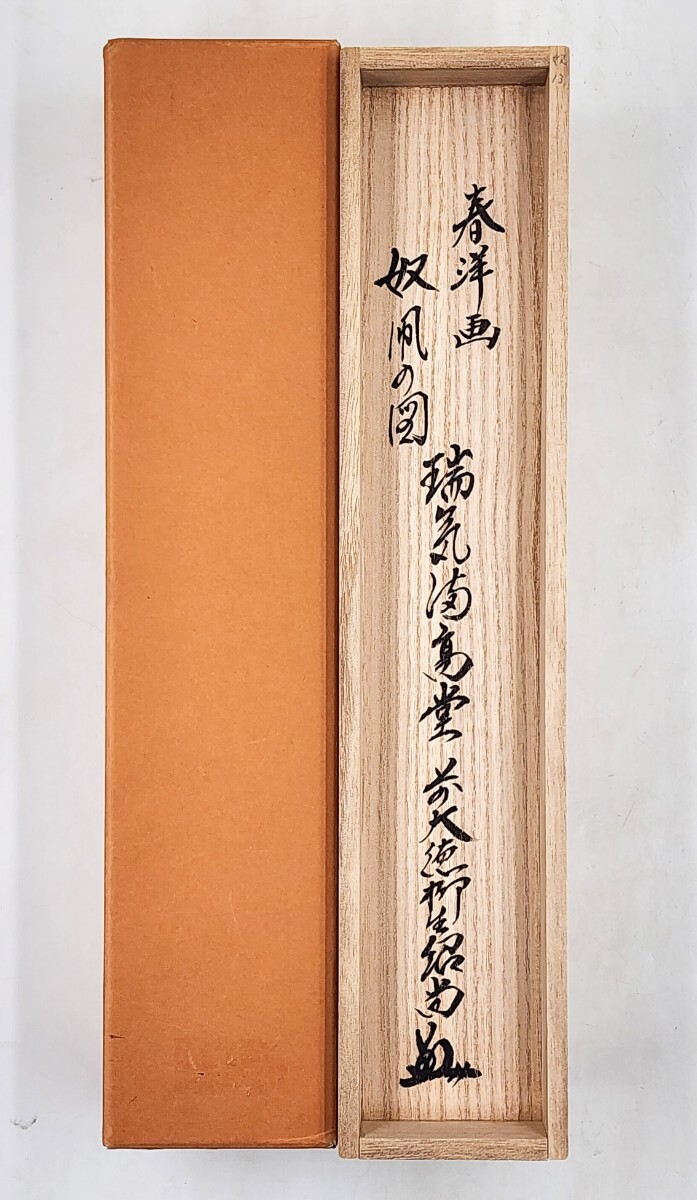 春洋画
奴凧の図
瑞気満高堂 前大徳柳生紹尚